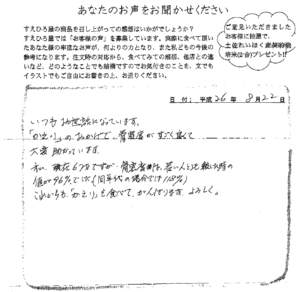 あなたのお声をお聞かせください
すえひろ屋の商品を召し上がっての感想はいかがでしょうか?
すえひろ屋では「お客様の声」を募集しています。実際に食べて頂い
たあなた様の率直なお声が、何よりの力となり、また私どもの今後の
参考になります。注文時の対応から、食べてみての感想、他店との違
いなど、どのようなことでも結構ですのでお気付きのことを、文でも
イラストでもご自由にお書きの上、お送りください。
ご意見いただきました
お客様に抽選で、
プレゼント!!
日付:平成26年 8月22日
いつもお世話になっています。
「かえり」のおかげで、骨密度がすごく高くて
大変助かっています。
私、現在67才ですが、骨密度は、若い人と比較した時の
値が96%でした(同年代の場合では118%)
これからも「かえり」を食べて、がんばります。よろしく。